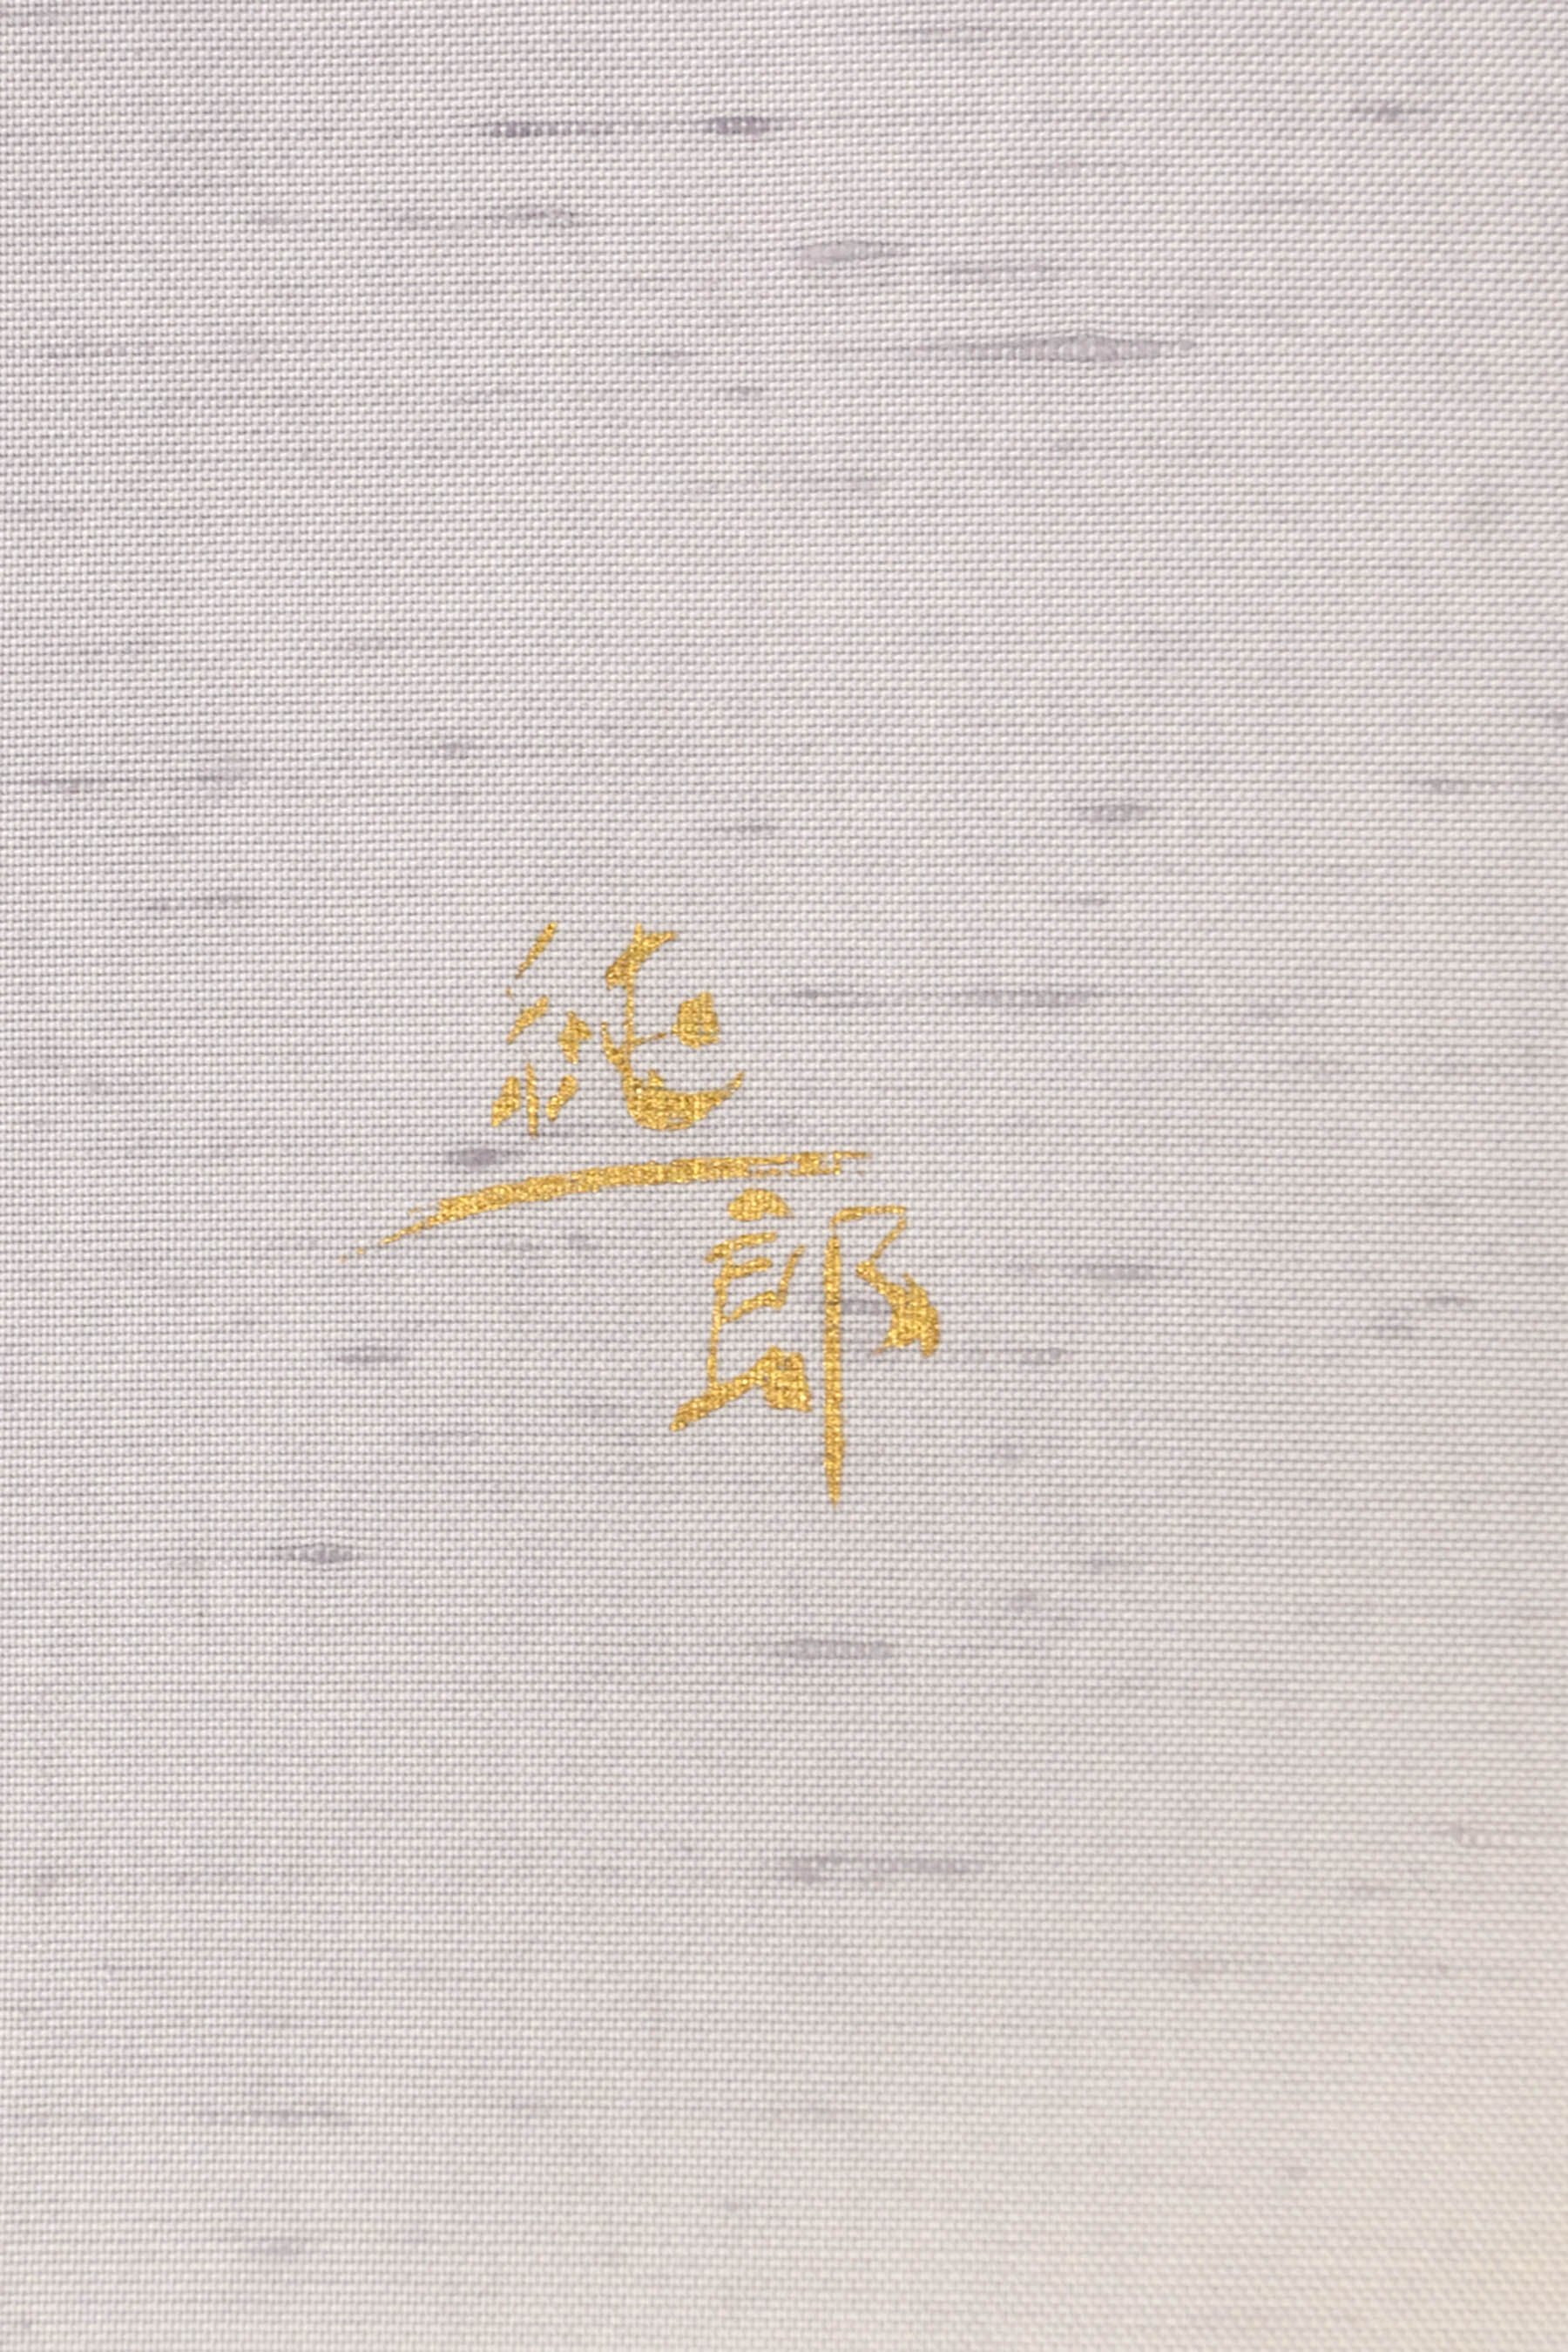 純一郎